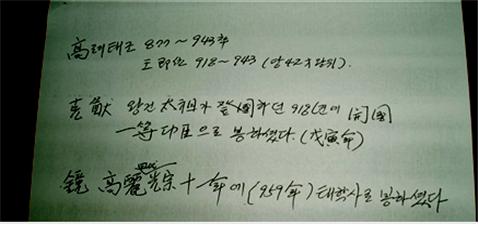 高려태조 877~943年
王即位 918~943 (당42才당위).
萱猷 왕건 太祖가 登國하던 918년에 開國
一等功臣으로 봉하셨다. (戊寅年)
鏡 高麗光宗十年에 (959年) 태학사로 봉하셨다